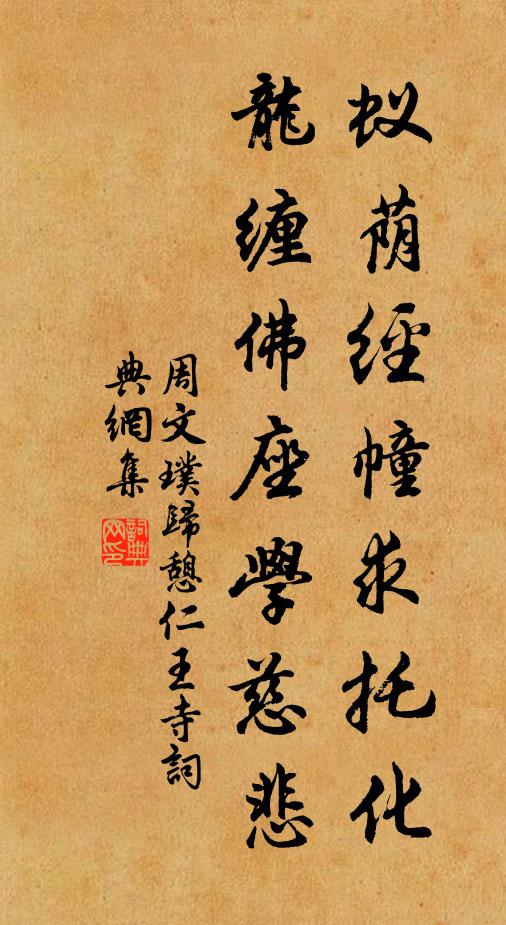 蚁荫經幢求托化
龍纏佛座學慈悲
周文璞歸憩仁王寺詞
典網集
詞典網印